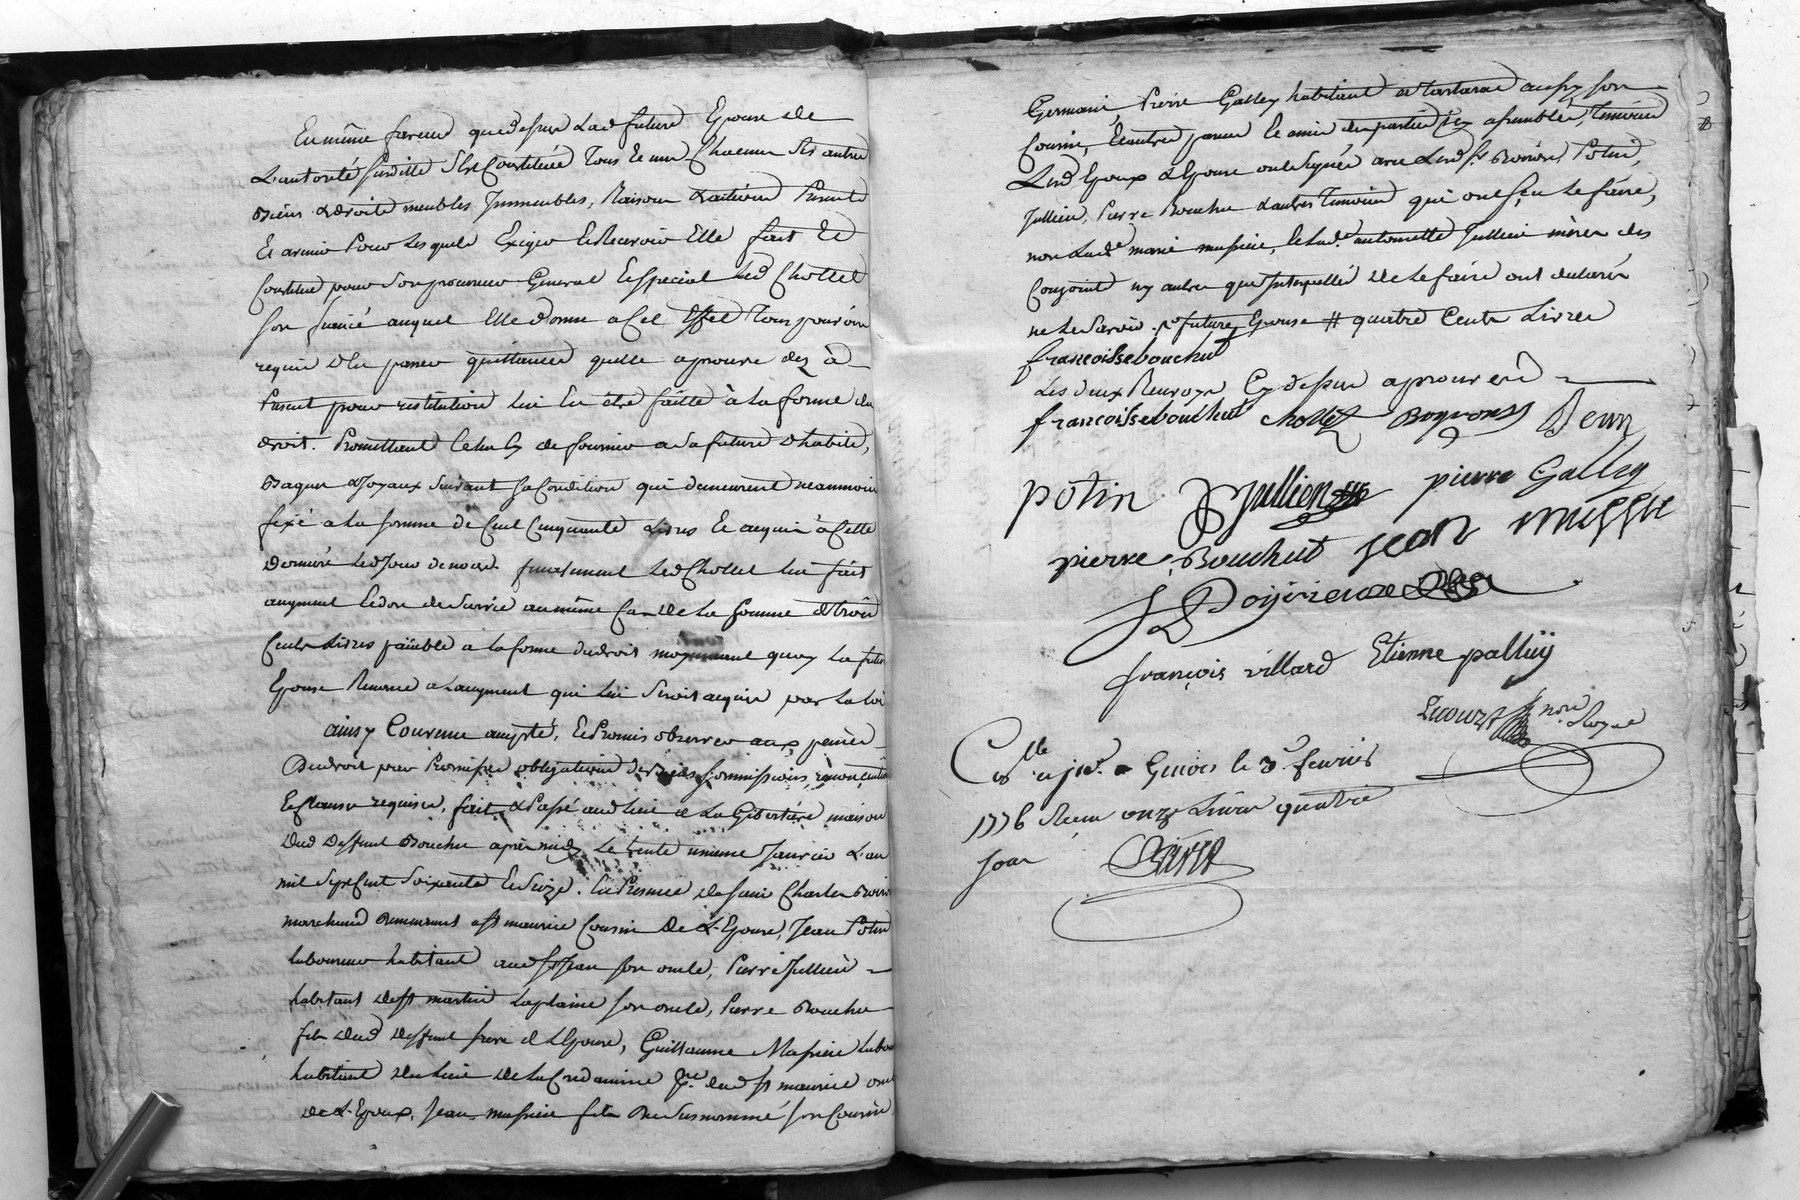 En même faveur que dessus Lad future Epouse de
L'autorité susditte s'est Constituée Tous et un Chacun ses autres
Biens & droits meubles Immeubles, Raisons & actions Presents
Et avenir Pour Lesquels Exiger et Recevoir Elle fait et
Constitue pour son procureur General Et special Led Chollet
son fiancé auquel Elle donne a Cet Effet Tous pouvoirs
requis d'en passer quittances quelle aprouve dez à
Present pour restitution lui En être faitte à la forme du
droit. Promettant de fournir a sa future d'habits,
Bagues & Joyaux suivant sa Condition qui demeurent neanmoins
fixé a la somme de Cent Cinquante Livres et acquis à Cette
derniere Led Jour de noces. finalement Led Chollet lui fait
augment Et don de survie au même Cas de la somme de trois
Cents Livres païable a la forme du droit moyennant quoy La future
Epouse Renonce a Laugment qui lui seroit acquis par la loi
ainsy Convenu accepté, et Promis observer aux peines
Du droit par Promesses obligations de Biens soumissions, renonciations
Et Clauses requises, fait & Passé aud lieu de La Gibertiére maison
Dud Deffunt Bouchu après midy Le trente unieme Janvier L'an
mil sept Cent Soixante et Seize. En Presence de sieur Charles
marchand demeurant a St maurice Cousin de L'Epouse, Jean Potin
laboureur habitant aud St Jean son oncle, Pierre Jullien
habitant de St martin Laplaine son oncle, Pierre Bouchu
fils dud Deffunt frere de L'Epouse, Guillaume Massieu
habitant du lieu de la psse dud St maurice oncle
de L'Epoux, Jean Massieu fils du susnommé son Cousin
Germain, Pierre Galley habitant a tartaras aussy son
Cousin, Et autres parens et amis des parties icy assemblés, Temoins
Lesd Epoux & Epouse ont signé avec Lesd Srs Potin,
Jullien, Pierre Bouchu & autres Temoins qui ont sçu le faire,
non Lade marie massieu, et Lade antoinette Jullien mères des
Conjoints ny autres que Interpellés de le faire ont declaré
ne le savoir. future Epouse # quatre Cents Livres
francoissebouchut
Les deux Renvoys Cy dessus aprouvés
francoissebouchut Chollet Boyrons
potin Jullien pierre Galley
pierre Bouchut jean
françois villard Etienne palluy
Lecourt nore Royal
Collé a Givors le 3e fevrier
1776 Reçu onze Livres quatre
sous